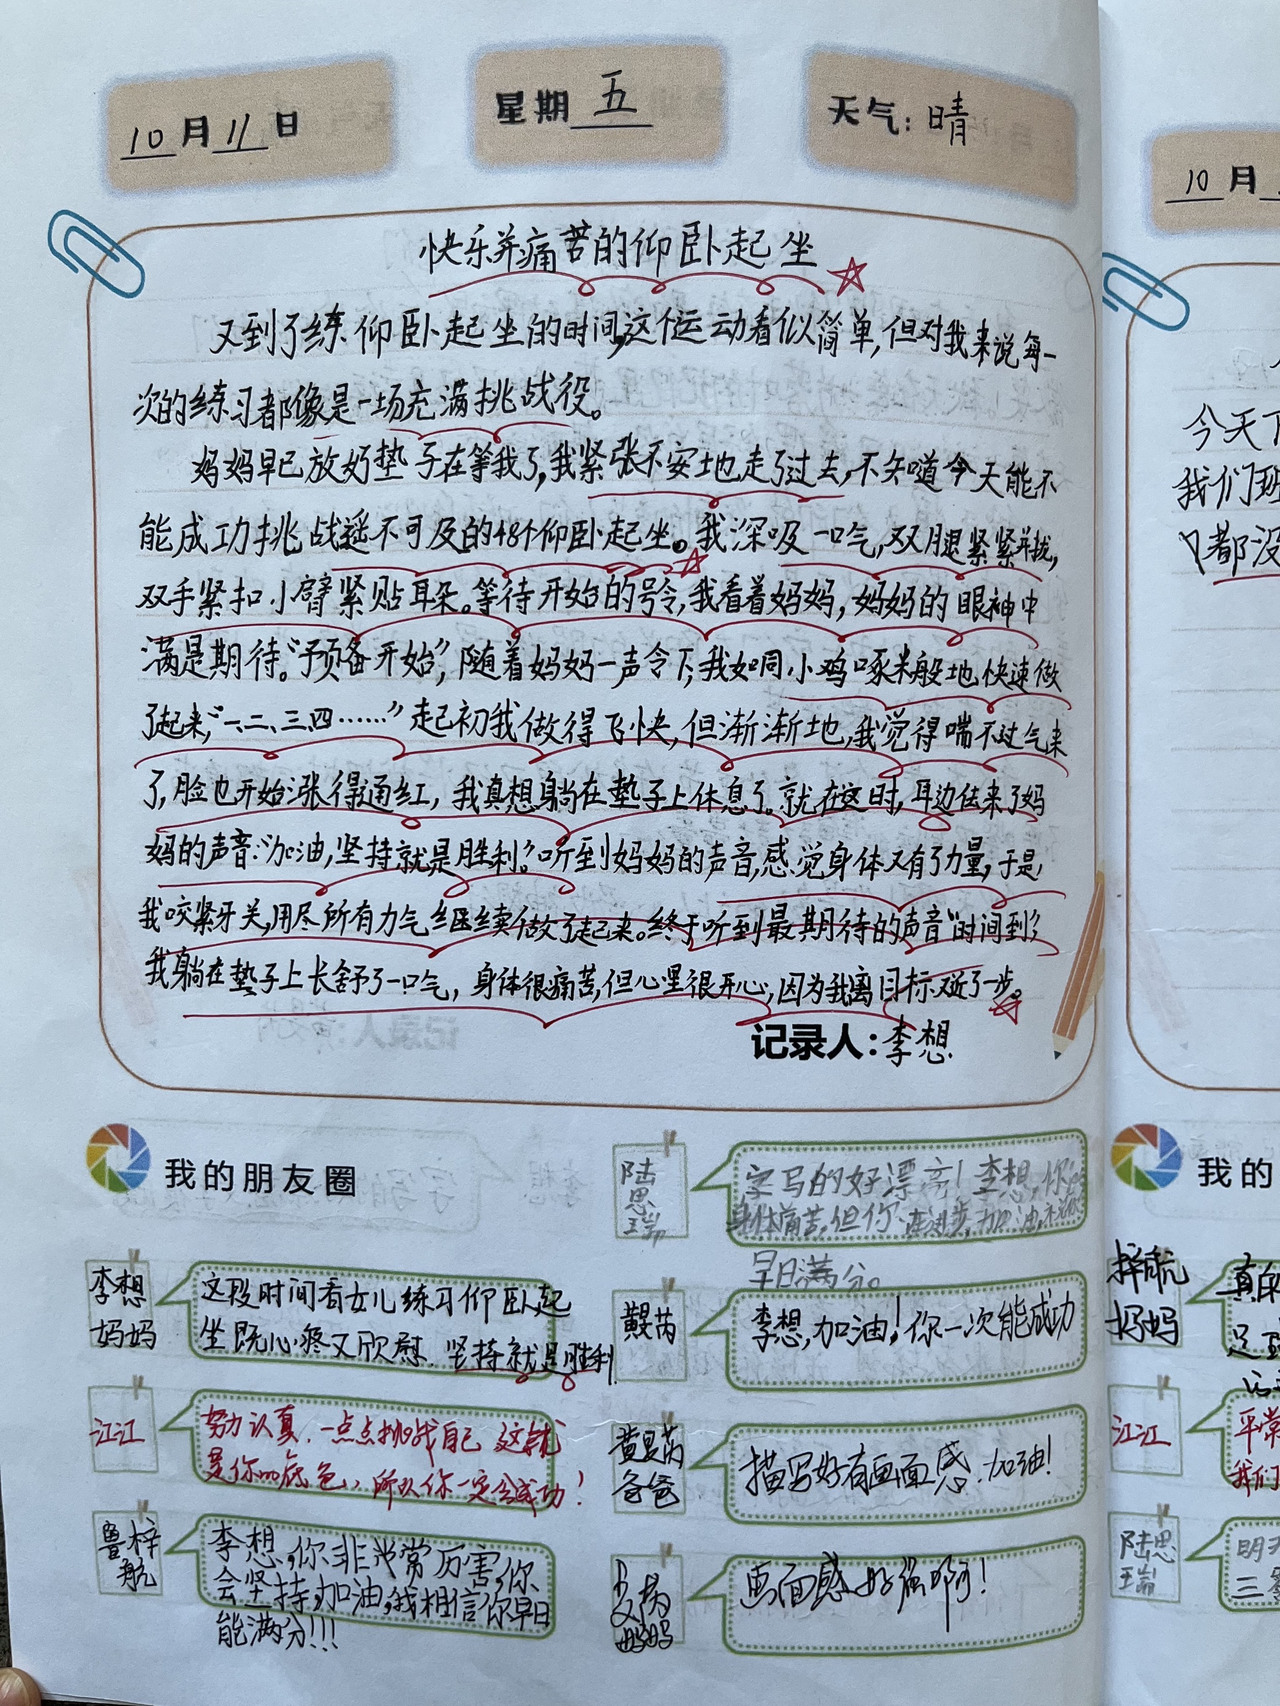 10月11日
星期 五
天气：晴
快乐并痛苦的仰卧起坐
又到了练仰卧起坐的时间,这个运动看似简单,但对我来说每一
次的练习都像是一场充满挑战役。
妈妈早已放好垫子在等我了,我紧张不安地走了过去,不知道今天能不
能成功挑战遥不可及的48个仰卧起坐。我深吸一口气,双腿紧紧并拢,
双手紧扣小臂紧贴耳朵。等待开始的号令,我看着妈妈,妈妈的眼神中
满是期待。“预备开始”,随着妈妈一声令下,我如同小鸡啄米般地快速做
了起来,“一、二、三、四……”起初我做得飞快,但渐渐地,我觉得喘不过气来
了,脸也开始涨得通红,我真想躺在垫子上休息了。就在这时,耳边传来了妈
妈的声音:“加油,坚持就是胜利”。听到妈妈的声音,感觉身体又有了力量,于是,
我咬紧牙关,用尽所有力气继续做了起来。终于听到最期待的声音“时间到”,
我躺在垫子上长舒了一口气,身体很痛苦,但心里很开心,因为我离目标又近了一步。
记录人：李想
我的朋友圈
李想
妈妈
这段时间看女儿练习仰卧起
坐既心疼又欣慰.坚持就是胜利
江江
努力认真.一点点挑战自己 这就
是你的底色,所以你一定会成功!
鲁梓
航
李想,你非常厉害,你
会坚持,加油,我相信你早日
能满分!!!
陆
思
瑞
字写的好漂亮!李想,你
身体痛苦,但你在进步,加油,
早日满分。
芮
李想,加油!你一次能成功
黄昱芮
爸爸
描写好有画面感.加油!
妈妈
画面感好强啊!
10月
今天下
我们班
都没
我的
梓航
妈妈
真的
江江
平常
我们
陆思
瑞
明天